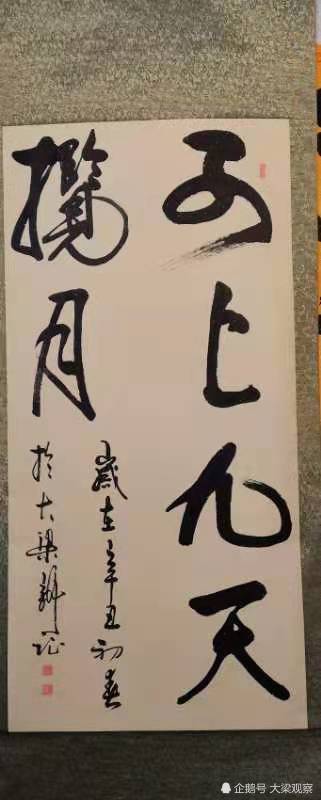 可上九天
攬月
歲在辛丑初春
於大梁
企鹅号 大梁观察